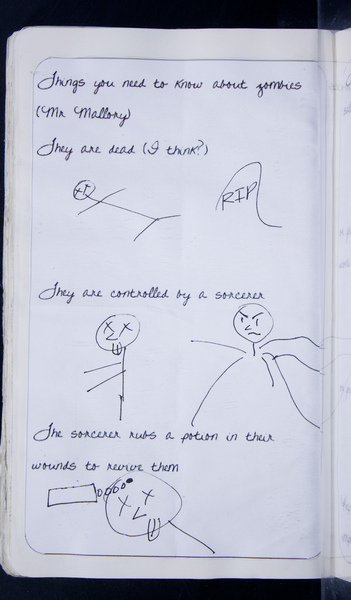 Things you need to know about zombies
(Mr. Mallory)
They are dead (I think?)
RIP
They are controlled by a sorcerer
The sorcerer rubs a potion in their
wounds to revive them